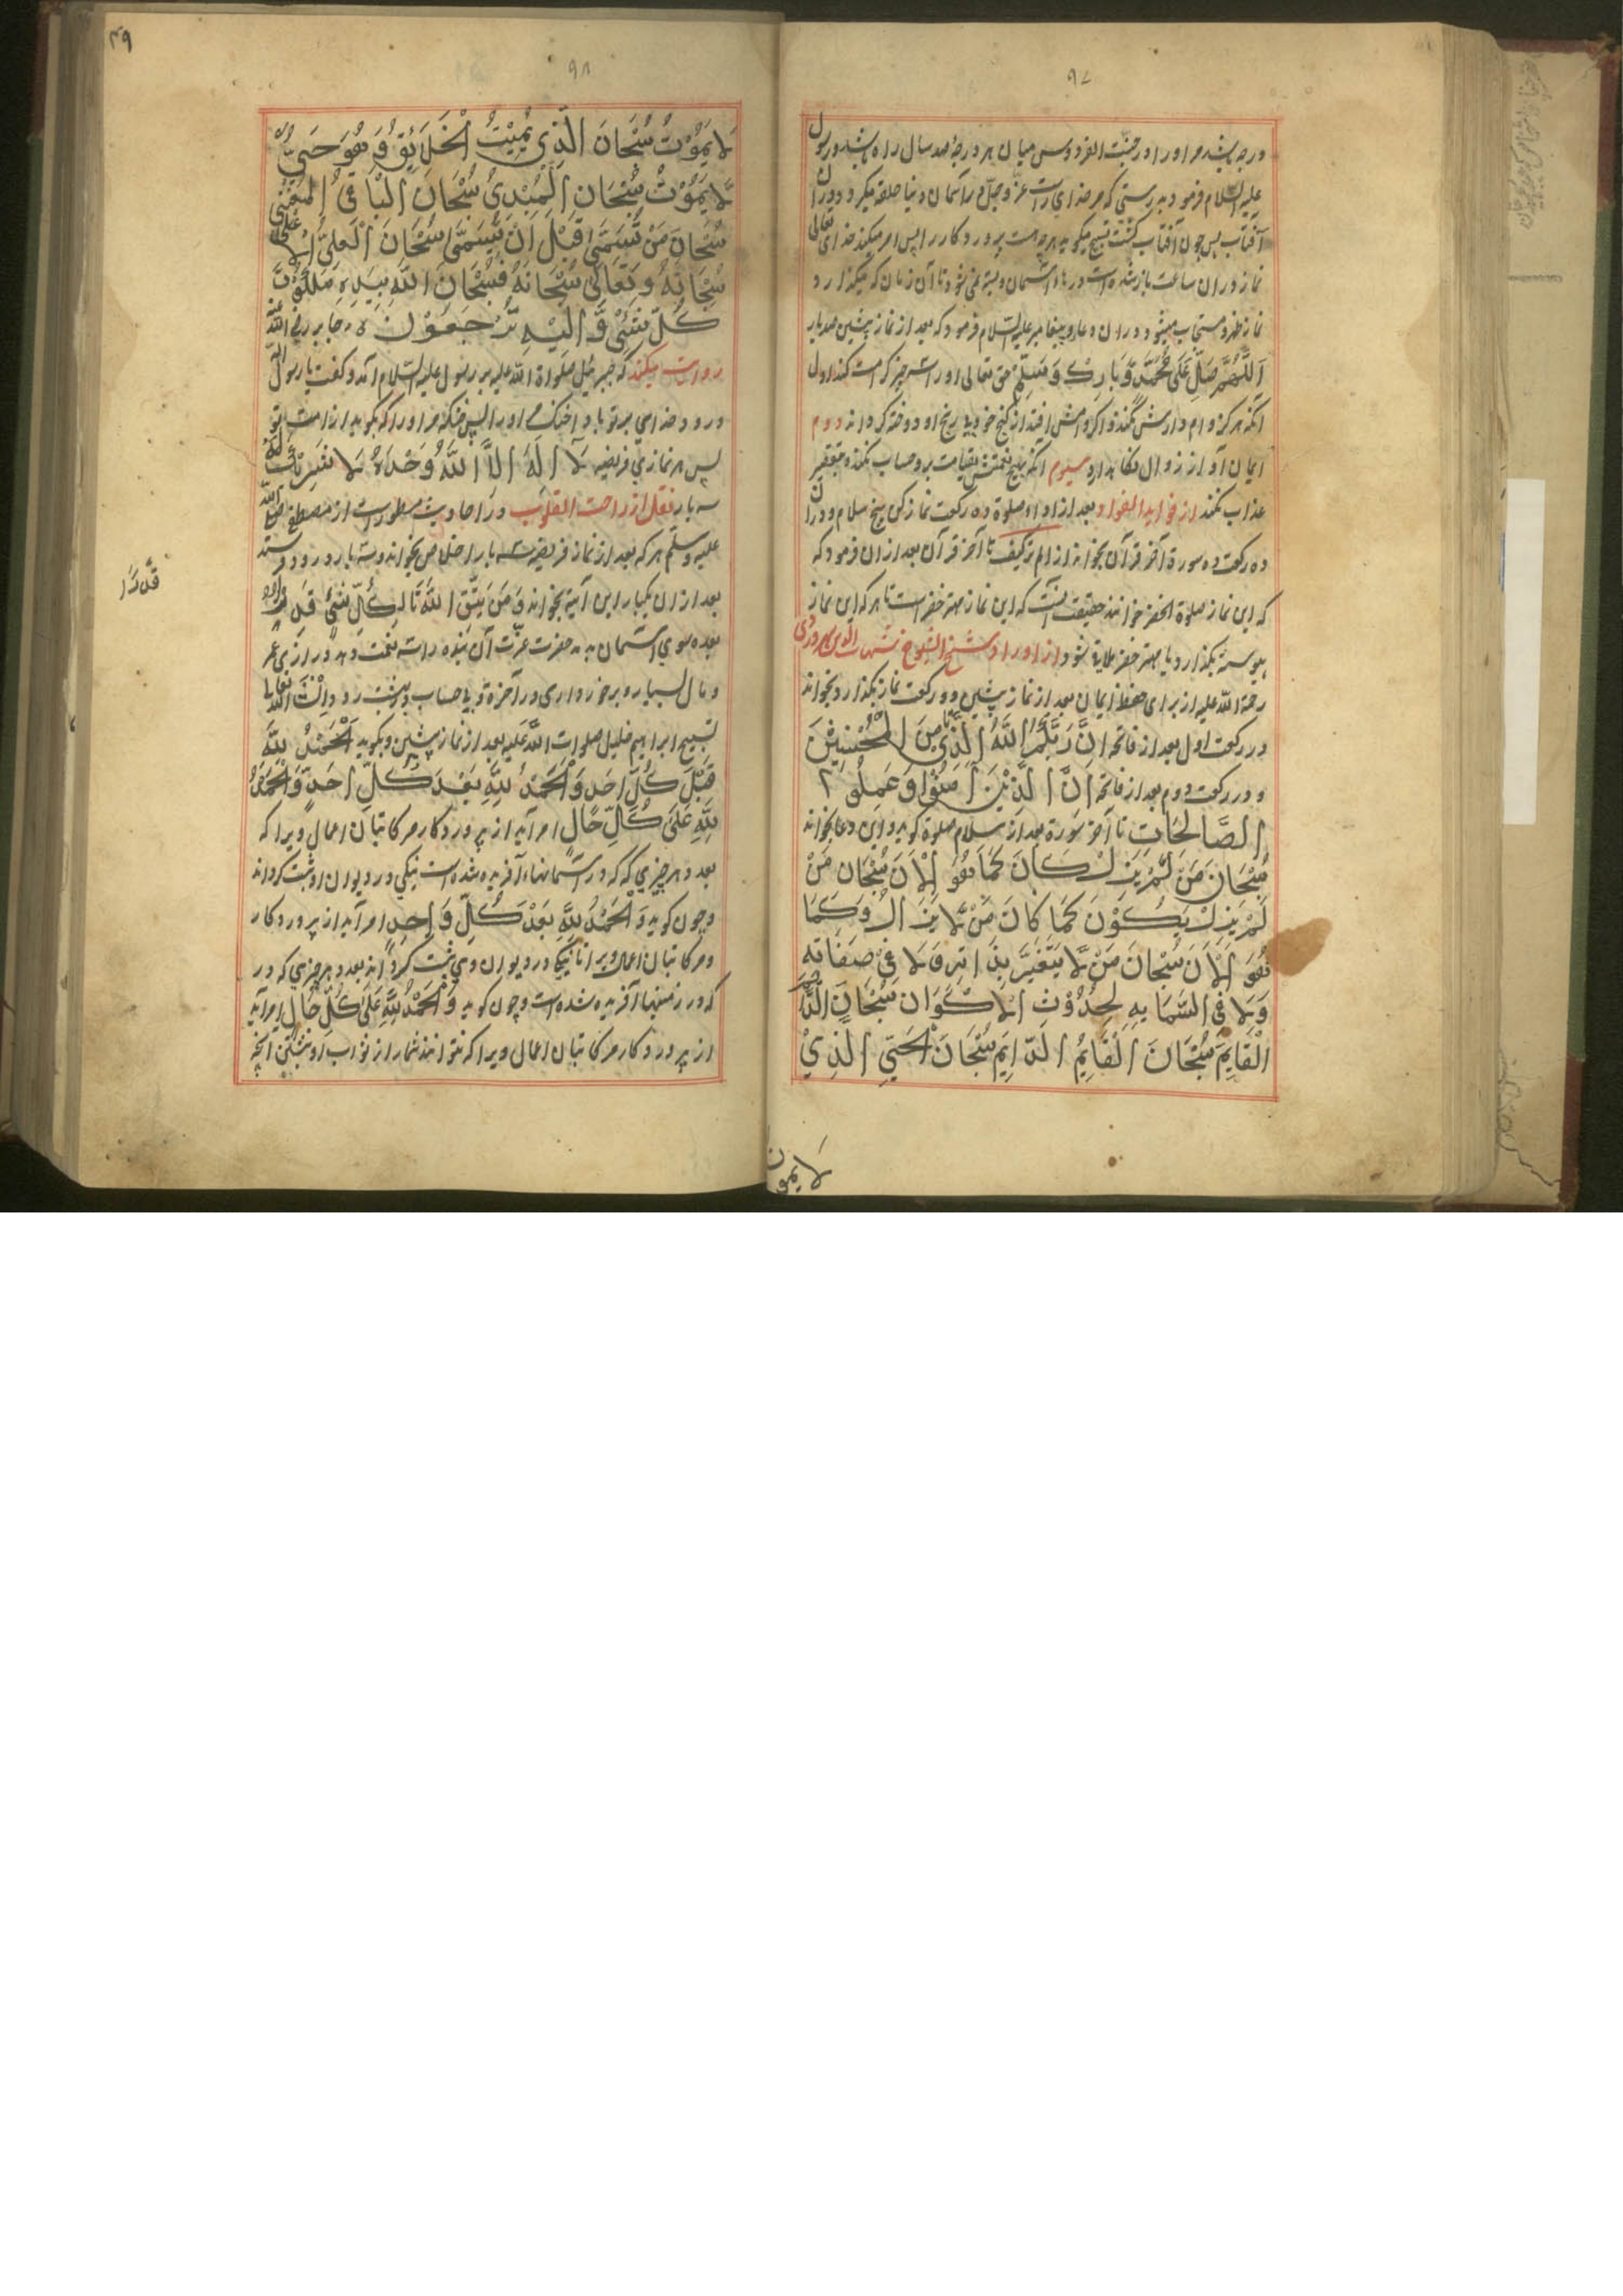 ۹۷
درجه باشد مر او را در جنّت الفردوس میان هر درجهٔ صد سال راه باشد و رسول
علیه السّلام فرمود بدرستی که مر خدای راست عزّ و جلّ در آسمان دنیا حلقه میکردد در آن
آفتاب پس چون آفتاب کشت تسبیح میکوید هر چه هست پروردکار را پس امر میکند خدای تعالی
نماز در آن ساعت باز شده است درهاء آسمان و بسته نمی شود تا آن زمان که میکذارد
نماز ظهر و مستجاب میشود در آن دعا و پیغامبر علیه السّلام فرمود که بعد از نماز پیشین صد بار
اَللّٰهُمَّ صَلِّ عَلٰی مُحَمَّدٍ وَّبَارِكْ وَسَلِّمْ حق تعالی او را سه چیز کرامت کند اول
آنکه هرکز وام دارش نکند و اکر وامش افتد از کنج خود بی رنج او دوخته کرداند دوم
ایمان او از زوال نکاه دارد سیوم آنکه بهیچ نعمتش بقیامت برو حساب نکند و بتقصیر
عذاب نکند از فواید الفواد بعد از اداء صلوة ده رکعت نماز کن بپنج سلام و در آن
ده رکعت ده سورة آخر قرآن بخواند از الم ترکیف تا آخر قرآن بعد از آن فرمود که
که این نماز صلوة الخضر خوانند حقیقت آنست که این نماز مهتر خضر است تا هر که این نماز
پیوسته بکذارد با مهتر خضر ملاقاة شود از اوراد شیخ الشیوخ شهاب الدین سهروردی
رحمة اللّه علیه از برای حفظ ایمان بعد از نماز پیشین دو رکعت نماز بکذارد و بخواند
در رکعت اول بعد از فاتحه اِنَّ رَبَّكُمُ اللّٰهُ الَّذِیْ تا مِنَ الْمُحْسِنِیْنَ
و در رکعت دوم بعد از فاتحه اِنَّ الَّذِیْنَ اٰمَنُوْا وَعَمِلُو ا
الصَّالِحَاتِ تا آخر سورة بعد از سلام صلوة کوید و این دعا بخواند
سُبْحَانَ مَنْ لَّمْ یَزَلْ كَانَ كَمَا هُوَ الْاٰنَ سُبْحَانَ مَنْ
لَمْ یَزَلْ یَكُوْنَ كَمَا كَانَ مَنْ لَّا یَزَالُ وَكَمَا
هُوَ الْاٰنَ سُبْحَانَ مَنْ لَّا یَتَغَیَّرَ بِذَاتِهٖ وَلَا فِیْ صِفَاتِهٖ
وَلَا فِی السَّمَایِهٖ لِحُدُوْثِ الْاَكْوَانِ سُبْحَانَ الدَّائِمِ
الْقَایِمَ سُبْحَانَ الْقَایِمُ الدَّایِمَ سُبْحَانَ الْحَیِّ الَّذِیْ
لَا یموت
۹۸
۴۹
لَا یَمُوْتُ سُبْحَانَ الَّذِیْ یُمِیْتُ الْخَلَائِقَ وَهُوَ حَیٌّ
لَّا یَمُوْتُ سُبْحَانَ الْمُبْدِیُ سُبْحَانَ الْبَاقِیُ الْمُغْنِی
سُبْحَانَ مَنْ تَسَمّٰی قَبْلَ اَنْ یُّسَمّٰی سُبْحَانَ الْعَلِیِّ الْاَعْلٰی
سُبْحَانَهُ وَتَعَالٰی سُبْحَانَهُ فَسُبْحَانَ اللّٰهِ بِیَدِهٖ مَلَكُوْتُ
كُلِّ شَیْءٍ وَّاِلَیْهِ تُرْجَعُوْنَ جابر رضی اللّه عنه
روایت میکند که جبرئیل صلواة اللّه علیه بر رسول علیه السّلام آمد و کفت یا رسول اللّه
درود خدای بر تو باد
پس هر نمازی فریضه لَا اِلٰهَ اِلَّا اللّٰهُ وَحْدَهٗ لَا شَرِیْكَ لَهٗ
سه بار نقل از راحت القلوب در احادیث مسطور است از مصطفی صلی اللّه
علیه و سلّم هر که بعد از نماز فریضه سه بار اخلاص بخواند و سه بار درود فرستد
بعد از آن یکبار این آیة بخواند وَمَنْ یَّتَّقِ اللّٰهَ تا لِكُلِّ شَیْءٍ قَدْرًا
قَدْرًا
و مال بسیار و برخورداری و در آخرة بی حساب ببهشت رود اِنْشَاءَ اللّٰه تعالی
تسبیح ابراهیم خلیل صلوات اللّه علیه بعد از نماز پیشین بکوید اَلْحَمْدُ لِلّٰهِ
قَبْلَ كُلِّ اَحَدٍ وَالْحَمْدُ لِلّٰهِ بَعْدَ كُلِّ اَحَدٍ وَالْحَمْدُ
لِلّٰهِ عَلٰی كُلِّ حَالٍ امر آید از پروردکار مر کاتبان اعمال ویرا که
بعدد هر چیزی که که در آسمانها آفریده شده است نیکی در دیوان او ثبت کرداند
و چون کوید وَالْحَمْدُ لِلّٰهِ بَعْدَ كُلِّ وَاحِدٍ امر آید از پروردکار
و مر کاتبان اعمال ویرا تا نیکی در دیوان وی ثبت کرداند بعدد هر چیزی که در
که در زمینها آفریده شده است و چون کوید وَالْحَمْدُ لِلّٰهِ عَلٰی كُلِّ حَالٍ امر آید
از پروردکار مر کاتبان اعمال ویرا که نتوانند شمار از ثواب او نبشتن آنچه